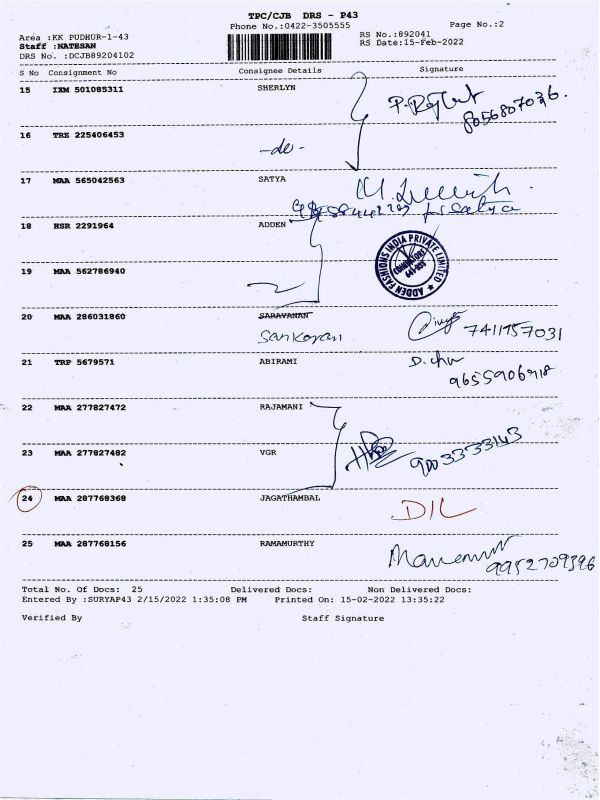 TPC/CJB DRS - P43
Phone No.:0422-3505555
Page No.:2
Area :KK PUDHUR-1-43
RS No.:892041
Staff :NATESAN
RS Date:15-Feb-2022
DRS No. :DCJB89204102
S No Consignment No Consignee Details Signature
15 IXM 501085311 SHERLYN
8056807036.
16 TRZ 225406453
-do-
17 MAA 565042563 SATYA
for Satya
18 HSR 2291964 ADDEN
ADDEN FASHIONS INDIA PRIVATE LIMITED
COIMBATORE
19 MAA 562786940
20 MAA 286031860 SARAVANAN
Sankaran 7411757031
21 TRP 5679571 ABIRAMI
9655906918
22 MAA 277827472 RAJAMANI
23 MAA 277827482 VGR
9003333143
24 MAA 287768368 JAGATHAMBAL
D/L
25 MAA 287768156 RAMAMURTHY
9952709396
Total No. Of Docs: 25 Delivered Docs: Non Delivered Docs:
Entered By :SURYAP43 2/15/2022 1:35:08 PM Printed On: 15-02-2022 13:35:22
Verified By Staff Signature